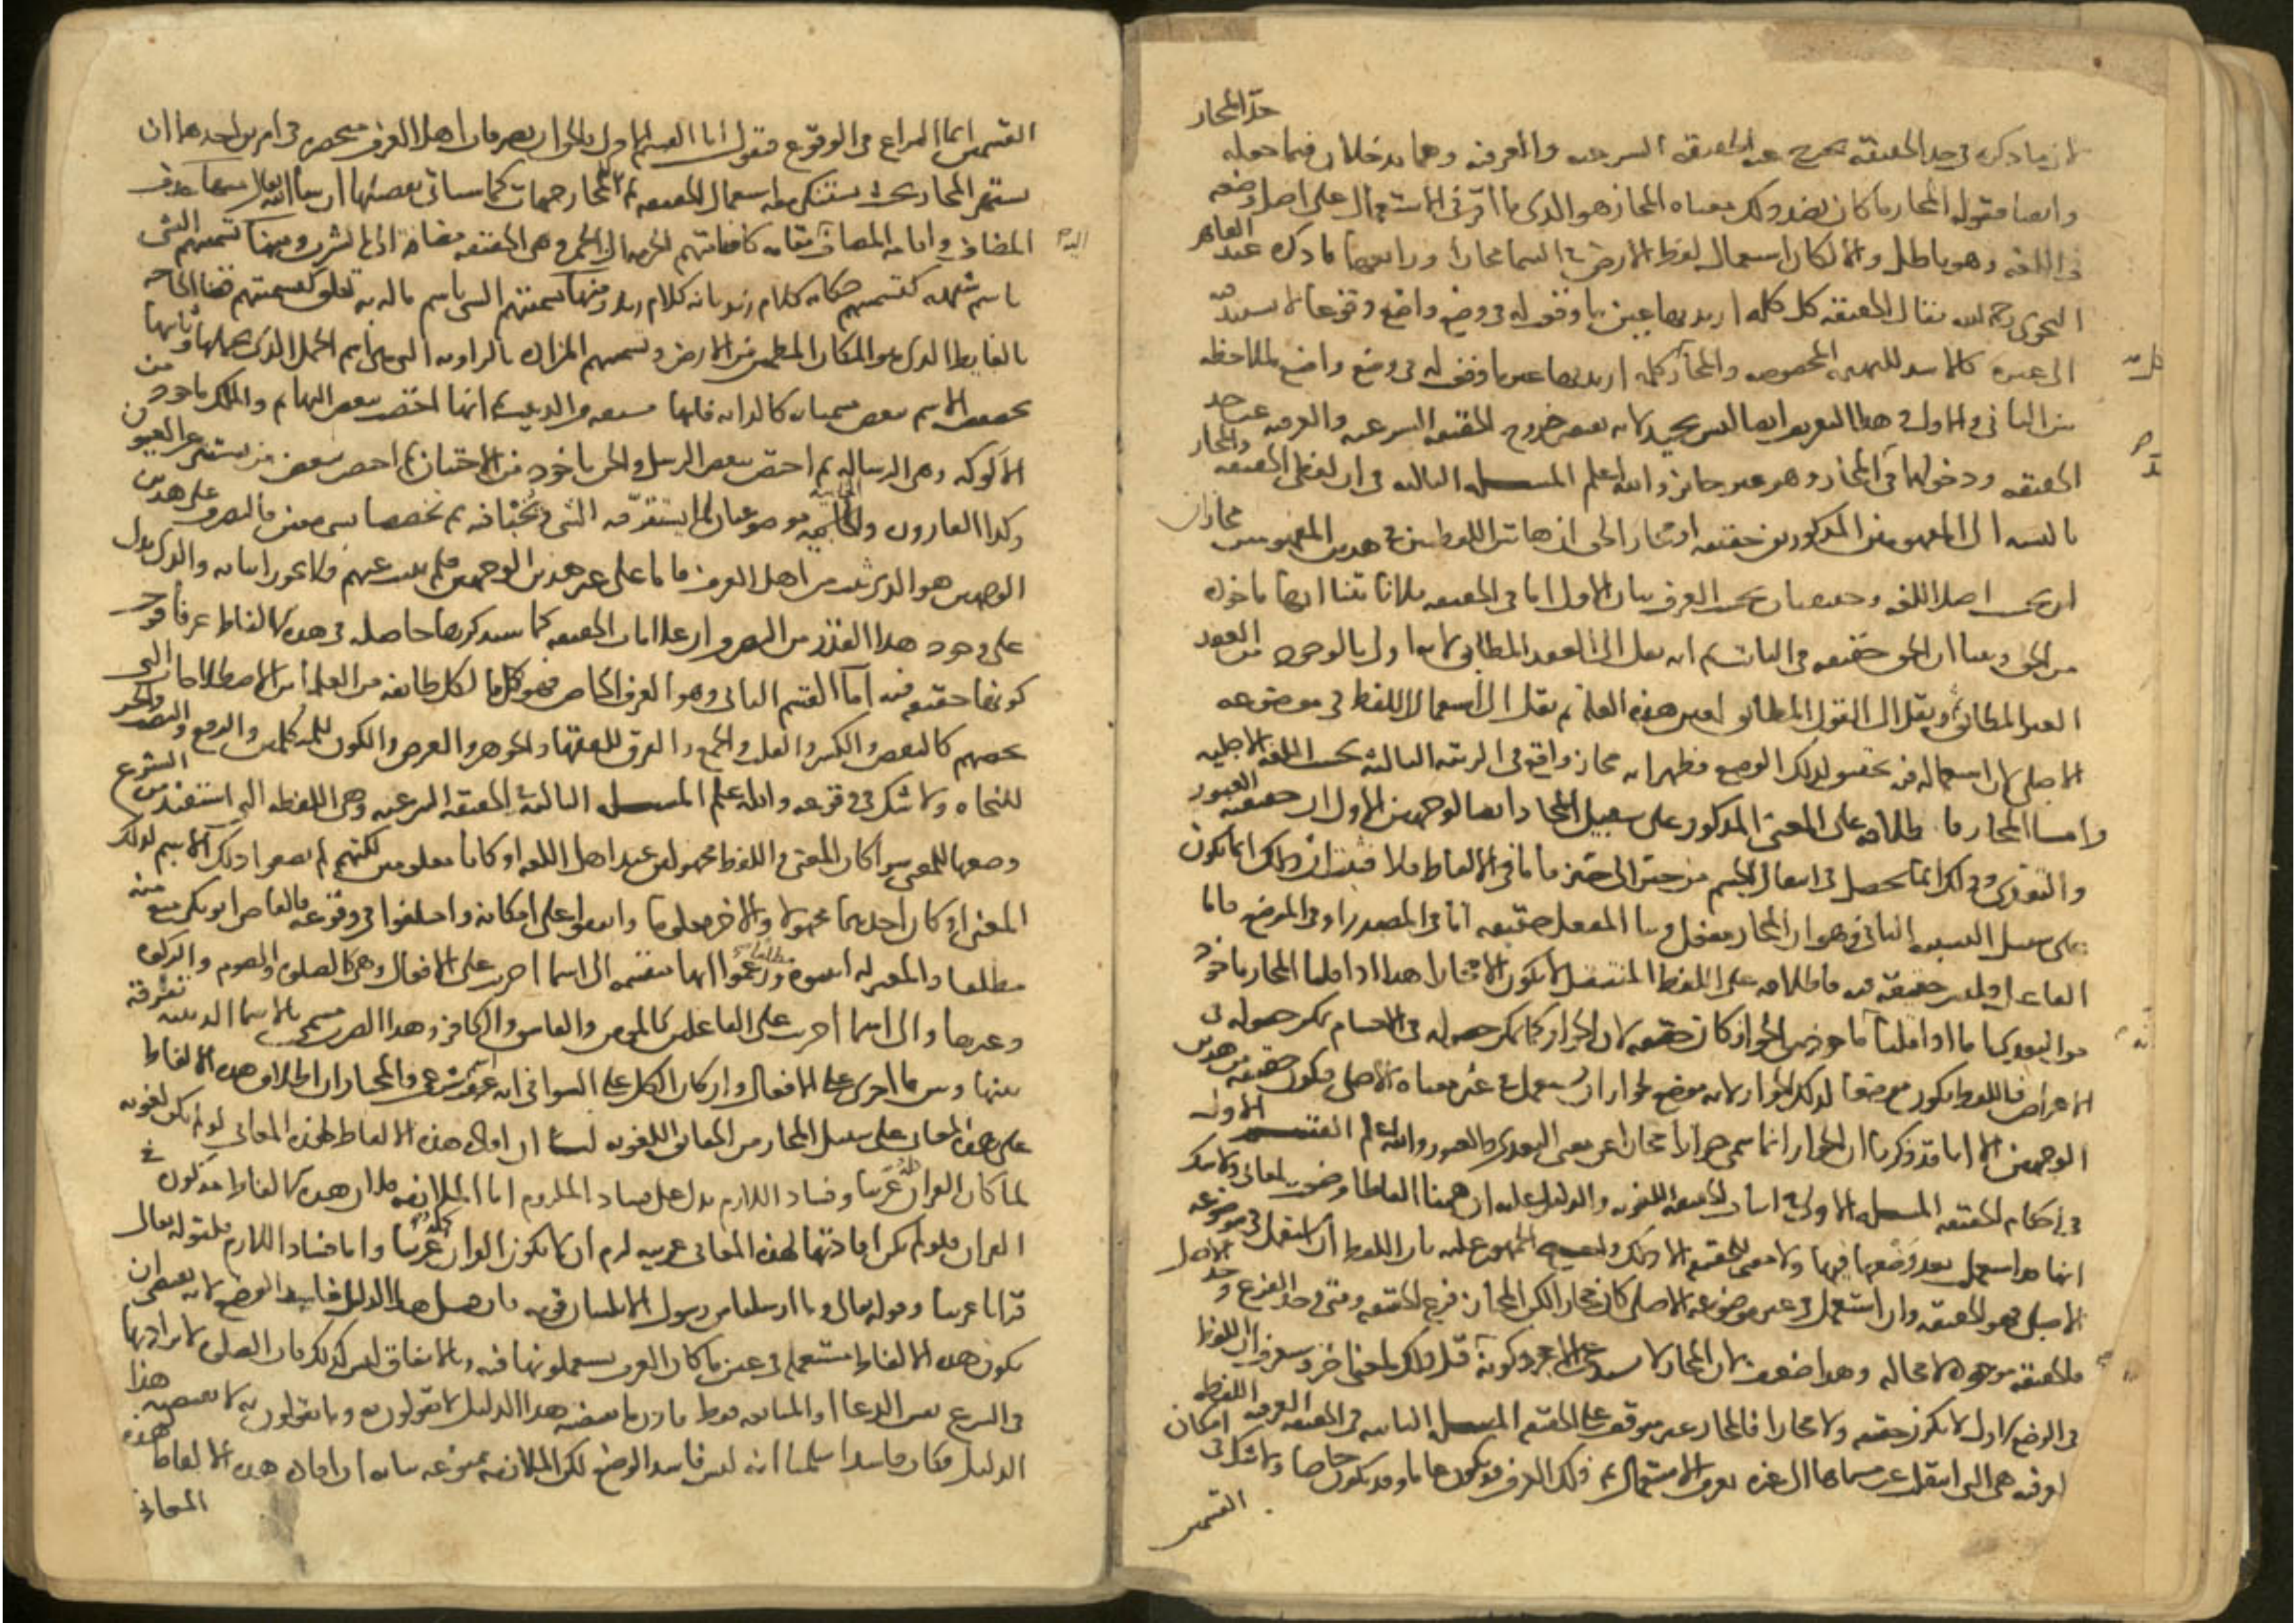 حد المجاز
لان ما ذكره في حد الحقيقة يخرج عنه الحقيقة الشرعية والعرفية وهما يدخلان فيما جعله
وايضا فقوله المجاز ما كان بضد ذلك معناه المجاز هو الذي ما اقر في الاستعمال على اصل وضعه
في اللغة وهو باطل والا لكان استعمال لفظ الارض في السما مجازا ورابعها ما ذكره عبد القاهر
النحوي رحمه الله فقال الحقيقة كل كلمة اريد بها عين ما وقعت له في وضع واضع وقوعا لا يستند فيه
الى غيره كالاسد للبهيمة المخصوصة والمجاز كل كلمة اريد بها غير ما وقعت له في وضع واضع لملاحظة
بين الثاني والاول وهذا التعريف ايضا ليس بجيد لانه يقتضي خروج الحقيقة الشرعية والعرفية عن حد
الحقيقة ودخولهما في المجاز وهو غير جائز والله اعلم المسئلة الثالثة في ان لفظي الحقيقة والمجاز
بالنسبة الى المفهومين المذكورين حقيقة او مجاز الحق ان هاتين اللفظتين في هذين المفهومين مجازان
ان بحسب اصل اللغة وحقيقتان بحسب العرف بيان الاول اما في الحقيقة فلانا بينا انها ماخوذة
من الحق وبينا ان الحق حقيقة في الثابت ثم انه نقل الى العقد المطابق لانه اولى بالوجود من العقد
الغير المطابق ونقل الى القول المطابق لعين هذه العلة ثم نقل الى استعمال اللفظ في موضوعه
الاصلي لان استعماله فيه تحقيق لذلك الوضع فظهر انه مجاز واقع في الرتبة الثالثة بحسب اللغة الاصلية
واما المجاز فاطلاقه على المعنى المذكور على سبيل المجاز ايضا لوجهين الاول ان حقيقته العبور
والتعدي وذلك انما يحصل في انتقال الجسم من حيز الى حيز فاما في الالفاظ فلا فثبت ان ذلك انما يكون
على سبيل التشبيه الثاني هو ان المجاز مفعل وبنا المفعل حقيقة اما في المصدر او في الموضع فاما
الفاعل فليس حقيقة فيه فاطلاقه على اللفظ المنتقل لا يكون الا مجازا هذا اذا قلنا المجاز ماخوذ
من التعدي فاما اذا قلنا ماخوذ من الجواز كان حقيقة لان الجواز كما يمكن حصوله في الاجسام يمكن حصوله في
الاعراض فاللفظ يكون موضعا لذلك الجواز لانه موضع لجواز ان يستعمل في غير معناه الاصلي فيكون حقيقة من هذين
الوجهين الا انا قد ذكرنا ان الجواز انما سمي جوازا مجازا عن معنى التعدي والعبور والله اعلم القسم الاول
في احكام الحقيقة المسئلة الاولى في اثبات الحقيقة اللغوية والدليل عليه ان هاهنا الفاظا وضعت لمعاني ولا شك
انها قد استعملت بعد وضعها فيها ولا معنى للحقيقة الا ذلك واحتج الجمهور عليه بان اللفظ ان استعمل في موضوعه
الاصلي فهو الحقيقة وان استعمل في غير موضوعه الاصلي كان مجازا لكن المجاز فرع الحقيقة ومتى وجد الفرع وجد الاصل
فالحقيقة موجودة لا محالة وهذا ضعيف لان المجاز لا يستدعي الا مجرد كونه قبل ذلك لمعنى اخر وستعرف ان اللفظ
في الوضع الاول لا يكون حقيقة ولا مجازا فالمجاز غير متوقف على الحقيقة المسئلة الثانية في الحقيقة العرفية اللفظة
العرفية هي التي انتقلت عن مسماها الى غيره بعرف الاستعمال ثم ذلك العرف قد يكون عاما وقد يكون خاصا ولا شك في امكان
القسمين
القسمين انما النزاع في الوقوع فنقول اما القسم الاول فالحق ان تصرفات اهل العرف منحصرة في امرين احدهما ان
يشتهر المجاز بحيث يستنكر معه استعمال الحقيقة ثم للمجاز جهات كما سياتي تفصيلها ان شا الله تعالى منها حذف
المضاف واقامة المضاف اليه مقامه كاضافتهم الحرمة الى الخمر وهي في الحقيقة مضافة الى الشرب ومنها تسميتهم الشي
باسم شبهه كتسميتهم حكاية كلام زيد بانه كلام زيد ومنها تسميتهم الشي باسم ما له به تعلق كتسميتهم قضا الحاجة
بالغايط الذي هو المكان المطمين من الارض وتسميتهم المزادة بالراوية التي هي اسم الجمل الذي يحملها وثانيها
تخصيص الاسم ببعض مسمياته كالدابة فانها مشتقة من الدبيب ثم انها اختصت ببعض البهائم والملك ماخوذ من
الالوكة وهي الرسالة ثم اختص ببعض الرسل والجن ماخوذ من الاجتنان ثم اختص ببعض من يستتر عن العيون
وكذا القارورة والخابية موضوعتان لما يستقر فيه الشي ويخبا فيه ثم تخصصا بشي معين فالتصرف على هذين
الوجهين هو الذي ثبت من اهل العرف فاما على غير هذين الوجهين فلم يثبت عنهم فلا يجوز اثباته والذي يدل
على وجود هذا القدر من التصرف ان علامات الحقيقة كما سنذكرها حاصلة في هذه الالفاظ عرفا فوجب
كونها حقيقة فيه اما القسم الثاني وهو العرف الخاص فهو كل ما لكل طائفة من العلما من الاصطلاحات التي
تخصهم كالنقض والكسر والقلب والجمع والفرق للفقها والجوهر والعرض والكون للمتكلمين والرفع والنصب والجر
للنحاة ولا شك في وقوعه والله اعلم المسئلة الثالثة الحقيقة الشرعية وهي اللفظة التي استفيد من الشرع
وضعها للمعنى سوا كان المعنى واللفظ مجهولين عند اهل اللغة او كانا معلومين لكنهم لم يضعوا ذلك الاسم لذلك
المعنى او كان احدهما مجهولا والاخر معلوما واتفقوا على امكانه واختلفوا في وقوعه فالقاضي ابو بكر منع منه
مطلقا والمعتزلة اثبتوه مطلقا وزعموا انها منقسمة الى اسما اجريت على الافعال وهي كالصلوة والصوم والزكوة
وغيرها والى اسما اجريت على الفاعلين كالمومن والفاسق والكافر وهذا الضرب يسمى بالاسما الدينية تفرقة
بينها وبين ما اجري على الافعال وان كان الكل على السوا في انه عرف شرعي والمختار ان اطلاق هذه الالفاظ
على هذه المعاني على سبيل المجاز من الحقائق اللغوية لنا ان افادة هذه الالفاظ لهذه المعاني لو لم تكن لغوية
لما كان القران كله عربيا وفساد اللازم يدل على فساد الملزوم اما الملازمة فلان هذه الالفاظ مذكورة في
القران فلو لم تكن افادتها لهذه المعاني عربية لزم ان لا يكون القران كله عربيا واما فساد اللازم فلقوله تعالى
قرانا عربيا وقوله تعالى وما ارسلنا من رسول الا بلسان قومه فان قيل هذا الدليل فاسد الوضع لانه يقتضي ان
تكون هذه الالفاظ مستعملة في عين ما كان العرب يستعملونها فيه وبالاتفاق ليس كذلك فان الصلوة لا يراد بها
في الشرع نفس الدعا او المتابعة فقط فاذن ما يقتضيه هذا الدليل لا تقولون به وما تقولون به لا يقتضيه هذا
الدليل فكان فاسدا سلمنا انه ليس فاسد الوضع لكن الملازمة ممنوعة بيانه ان افادة هذه الالفاظ لهذه
المعاني